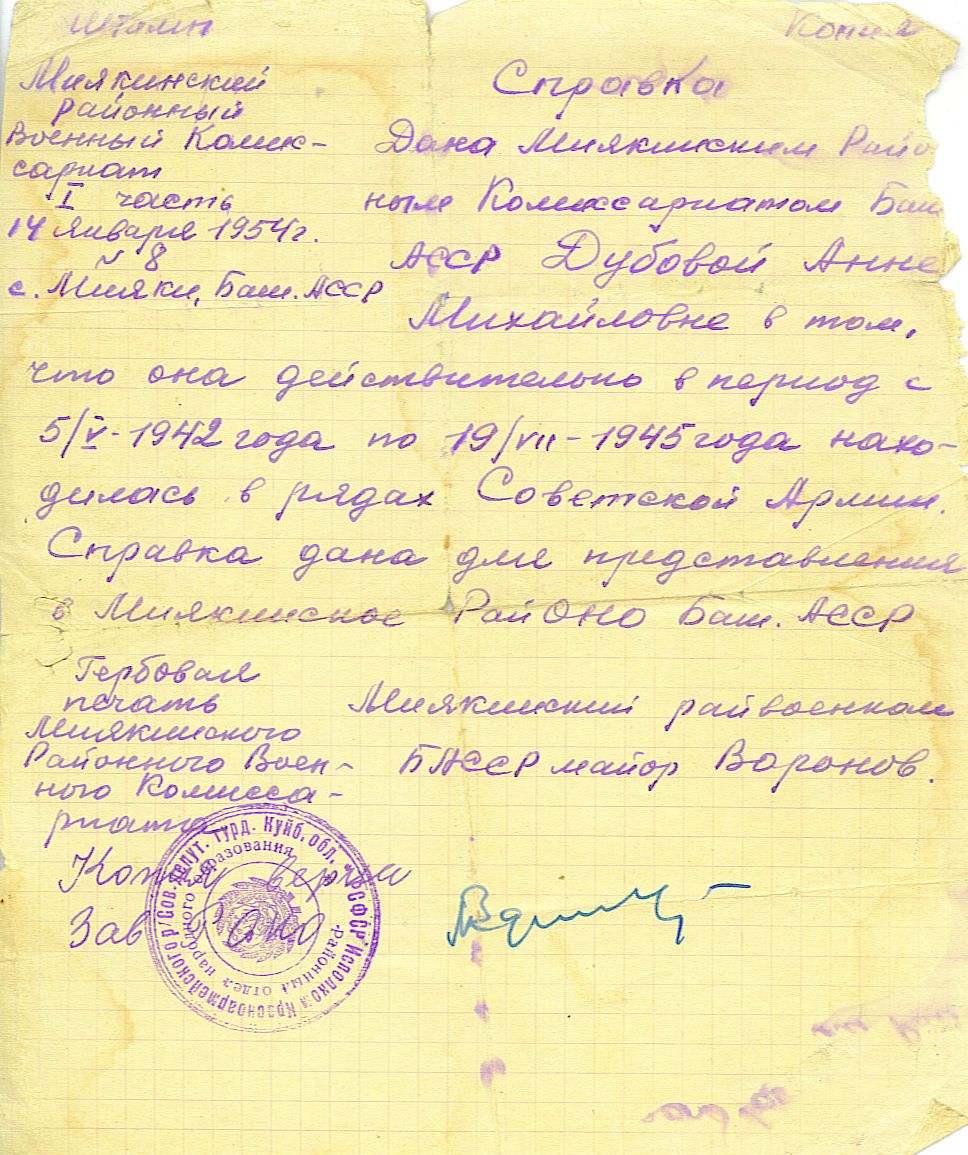 Штамп
Копия
Миякинский
районный
Военный Комис-
сариат
I часть
14 января 1954 г.
№ 8
с. Мияки, Баш. АССР
Справка
Дана Миякинским Райо
ным Комиссариатом Баш
АССР Дубовой Анне
Михайловне в том,
что она действительно в период с
5/V-1942 года по 19/VII-1945 года нахо-
дилась в рядах Советской Армии.
Справка дана для представления
в Миякинское РайОНО Баш. АССР
Гербовая
печать
Миякинского
Районного Воен-
ного Комисса-
риата
Миякинский райвоенком
БАССР майор Воронов.
Копия верна
Зав РОНО
Исполком Красноармейского р/Сов. депут. труд. Куйб. обл. РСФСР
Районный отдел народного образования